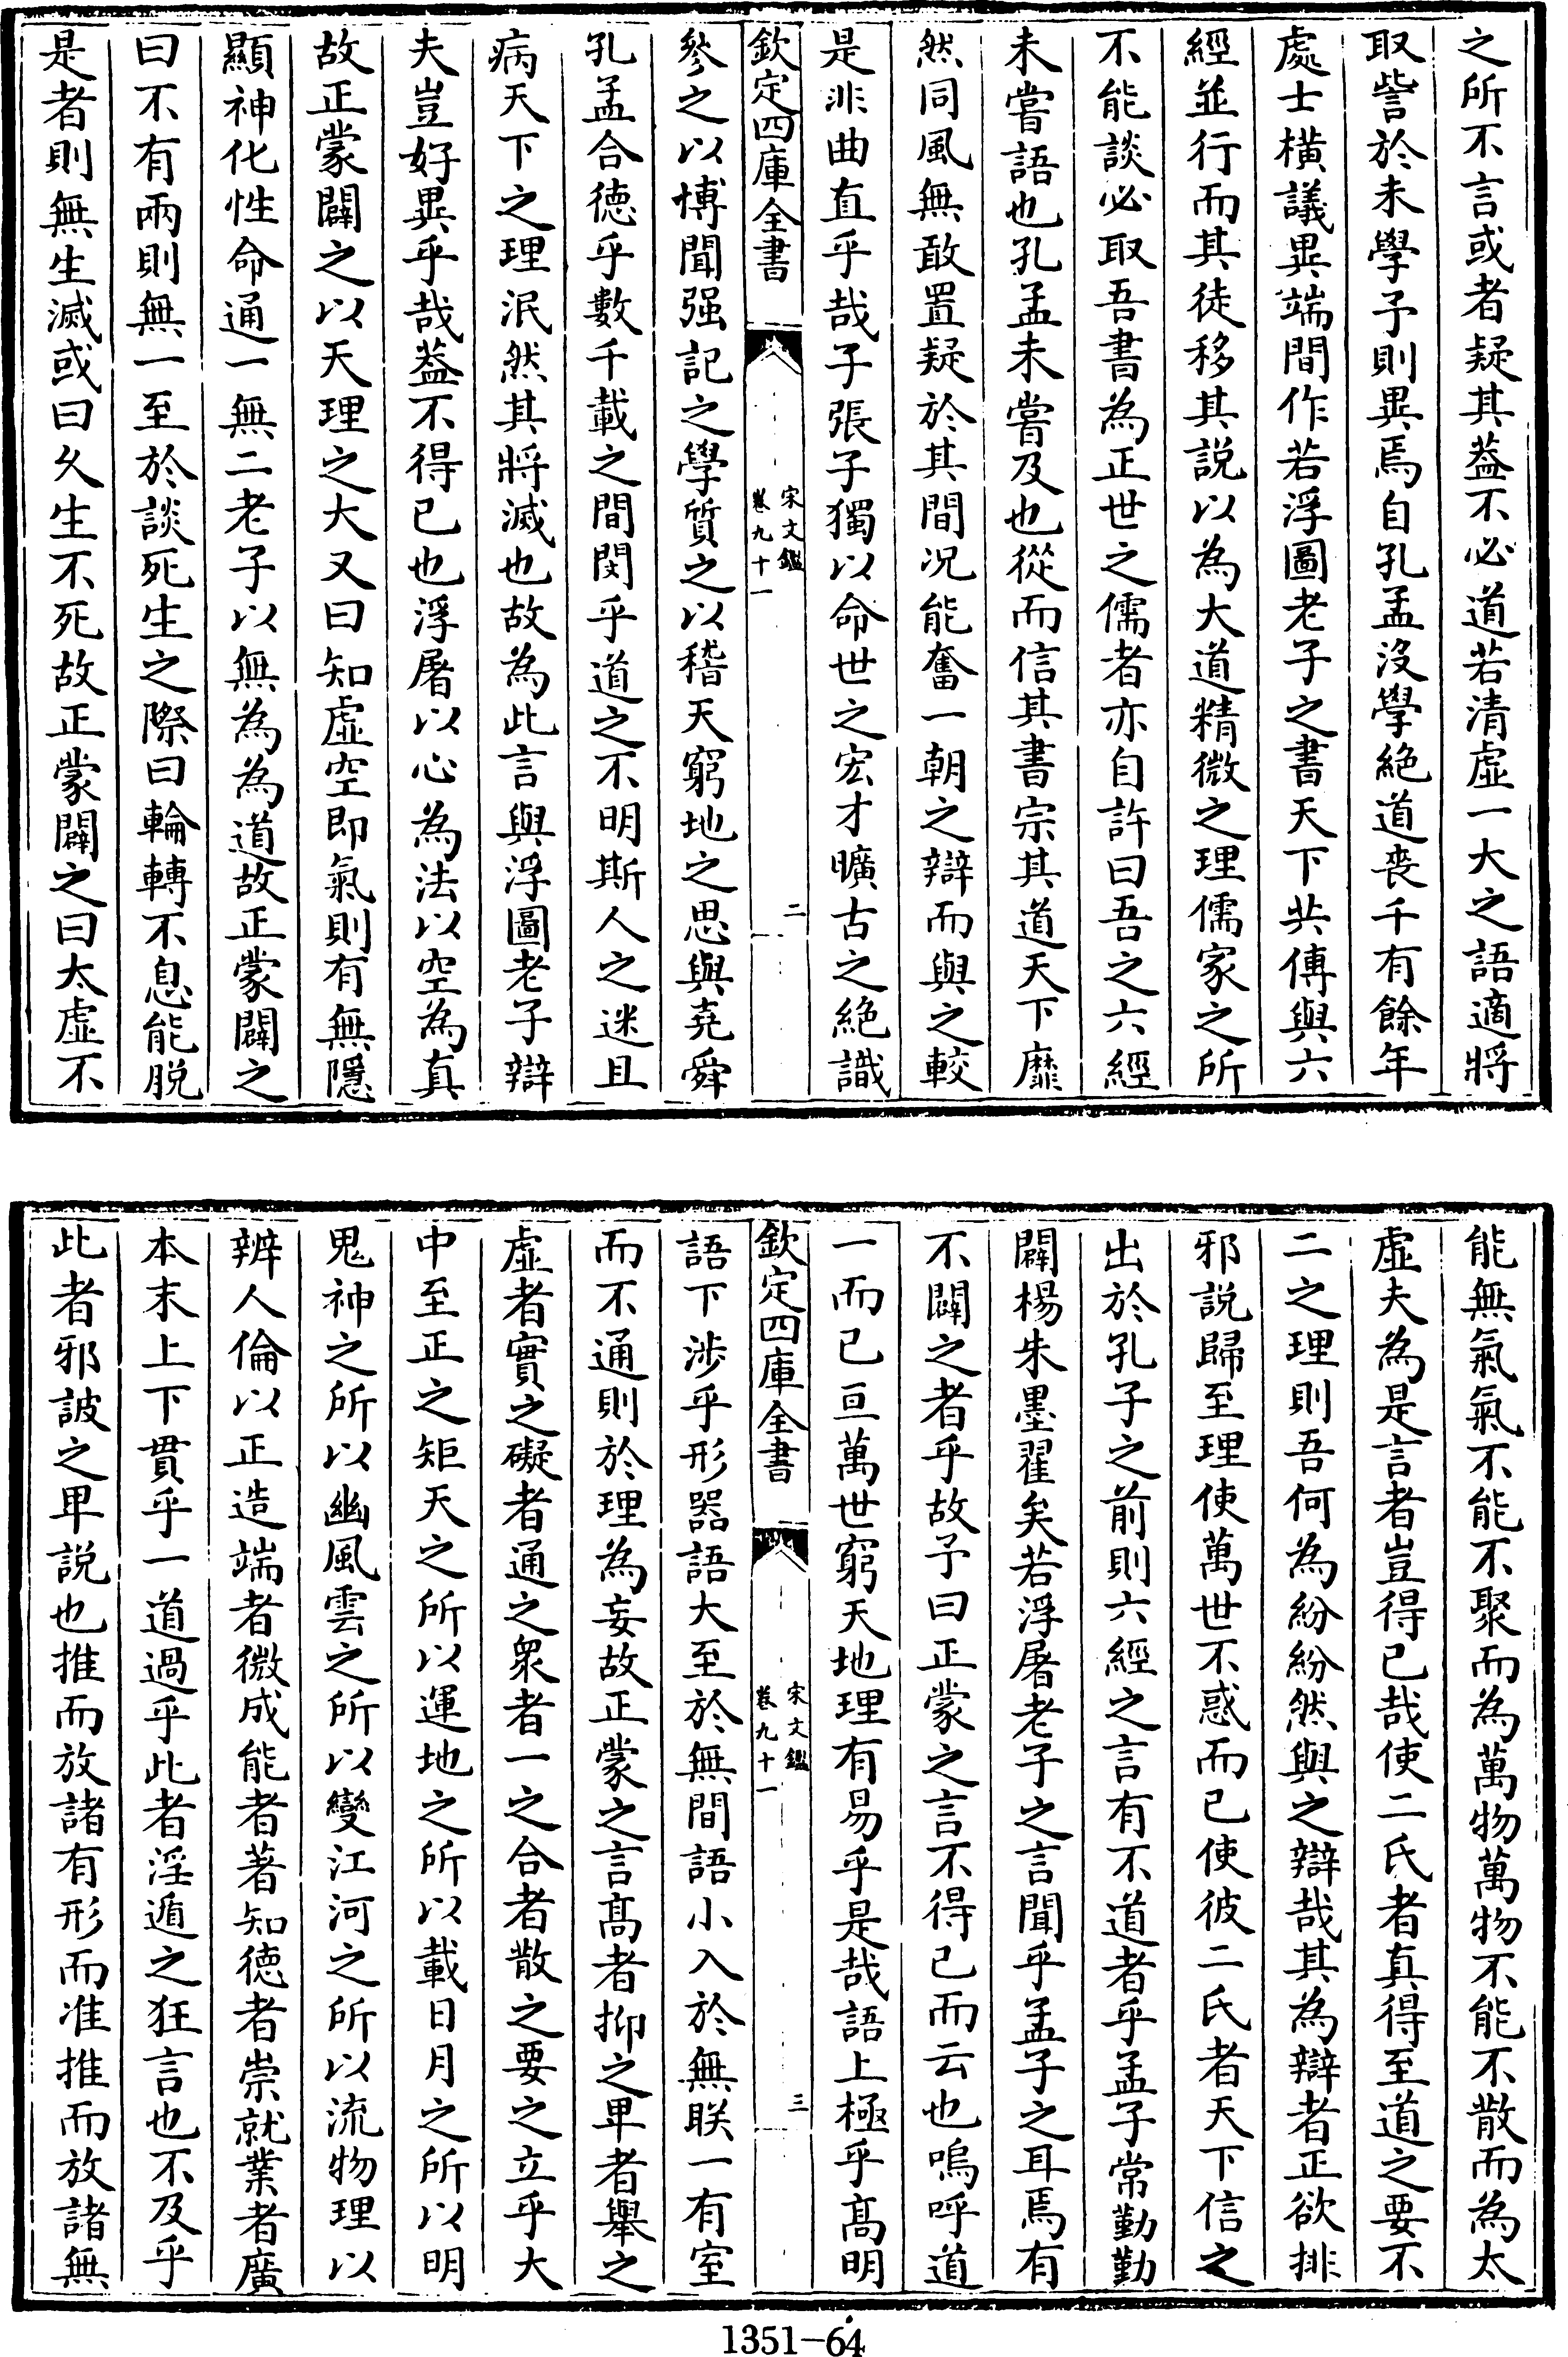 之所不言或者疑其葢不必道若清虛一大之語適將
取訾於末學予則異焉自孔孟沒學絶道喪千有餘年
處士橫議異端間作若浮圖老子之書天下共傳與六
經並行而其徒移其説以為大道精微之理儒家之所
不能談必取吾書為正世之儒者亦自許曰吾之六經
未嘗語也孔孟未嘗及也從而信其書宗其道天下靡
然同風無敢置疑於其間况能奮一朝之辯而與之較
是非曲直乎哉子張子獨以命世之宏才曠古之絶識
欽定四庫全書
宋文鑑
卷九十一
二
參之以博聞强記之學質之以稽天窮地之思與堯舜
孔孟合德乎數千載之間閔乎道之不明斯人之迷且
病天下之理泯然其將滅也故為此言與浮圖老子辯
夫豈好異乎哉葢不得已也浮屠以心為法以空為真
故正蒙闢之以天理之大又曰知虛空即氣則有無隱
顯神化性命通一無二老子以無為為道故正蒙闢之
曰不有兩則無一至於談死生之際曰輪轉不息能脱
是者則無生滅或曰久生不死故正蒙闢之曰太虛不
能無氣氣不能不聚而為萬物萬物不能不散而為太
虛夫為是言者豈得已哉使二氏者真得至道之要不
二之理則吾何為紛紛然與之辯哉其為辯者正欲排
邪説歸至理使萬世不惑而已使彼二氏者天下信之
出於孔子之前則六經之言有不道者乎孟子常勤勤
闢楊朱墨翟矣若浮屠老子之言聞乎孟子之耳焉有
不闢之者乎故予曰正蒙之言不得已而云也嗚呼道
一而已亘萬世窮天地理有易乎是哉語上極乎髙明
欽定四庫全書
宋文鑑
卷九十一
三
語下涉乎形器語大至於無間語小入於無眹一有室
而不通則於理為妄故正蒙之言髙者抑之卑者舉之
虛者實之礙者通之衆者一之合者散之要之立乎大
中至正之矩天之所以運地之所以載日月之所以明
鬼神之所以幽風雲之所以變江河之所以流物理以
辨人倫以正造端者微成能者著知德者崇就業者廣
本末上下貫乎一道過乎此者淫遁之狂言也不及乎
此者邪詖之卑説也推而放諸有形而准推而放諸無
1351-64